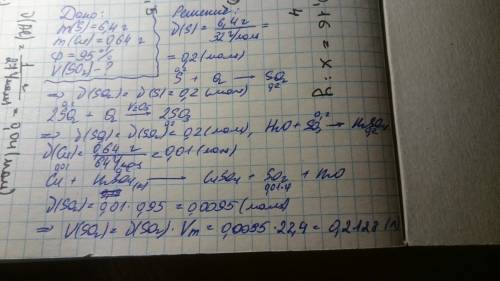 Дано:
m(S)=6,4 г
m(Cu)=0,64 г
φ=95%
V(SO₂)-?
Решение:
ν(S)=6,4 г / 32 г/моль =
=0,2(моль)
0,2 0,2
S + O₂ → SO₂
⇒ ν(SO₂)=ν(S)=0,2(моль)
2SO₂ + O₂ →(V₂O₅) 2SO₃
⇒ ν(SO₃)=ν(SO₂)=0,2(моль), H₂O+SO₃ → H₂SO₄
ν(Cu)=0,64 г / 64 г/моль =0,01(моль)
Cu + H₂SO₄(к) → CuSO₄ + SO₂ + H₂O
ν(SO₂)=0,01·0,95=0,0095(моль)
⇒ V(SO₂)=ν(SO₂)·Vm=0,0095·22,4=0,2128(л)
=0,04(моль)